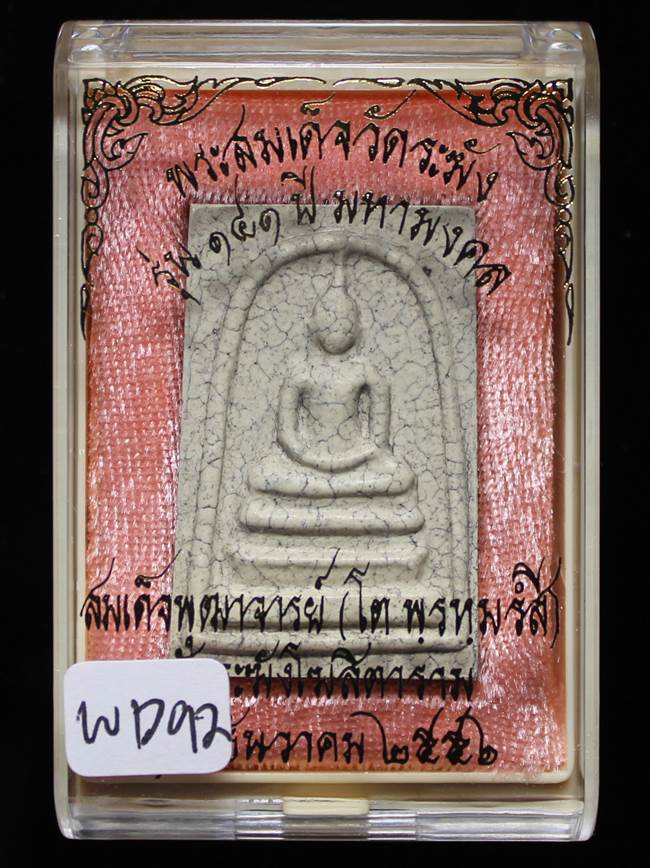 พระสมเด็จวัดระฆัง
รุ่น ๑๔๑ ปี มหามงคล
สมเด็จพุฒาจารย์ (โต พฺรหฺมรํสี)
ระฆังโฆสิตาราม
ธันวาคม ๒๕๕๖